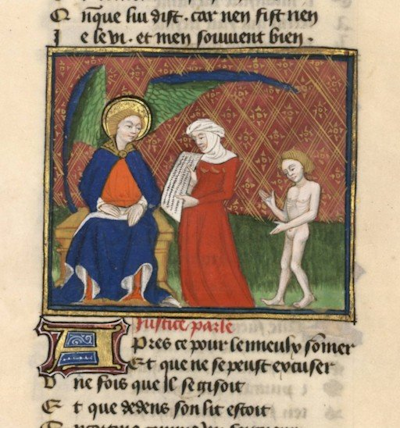 O nque lui dist . car nen fist rien
J e le vi . et men souuient bien .
Justice parle
A Pres ce pour le mieulx sōmer
E t que ne se peust excuser
V ne fois que Il se gisoit
E t que dedens son lit estoit